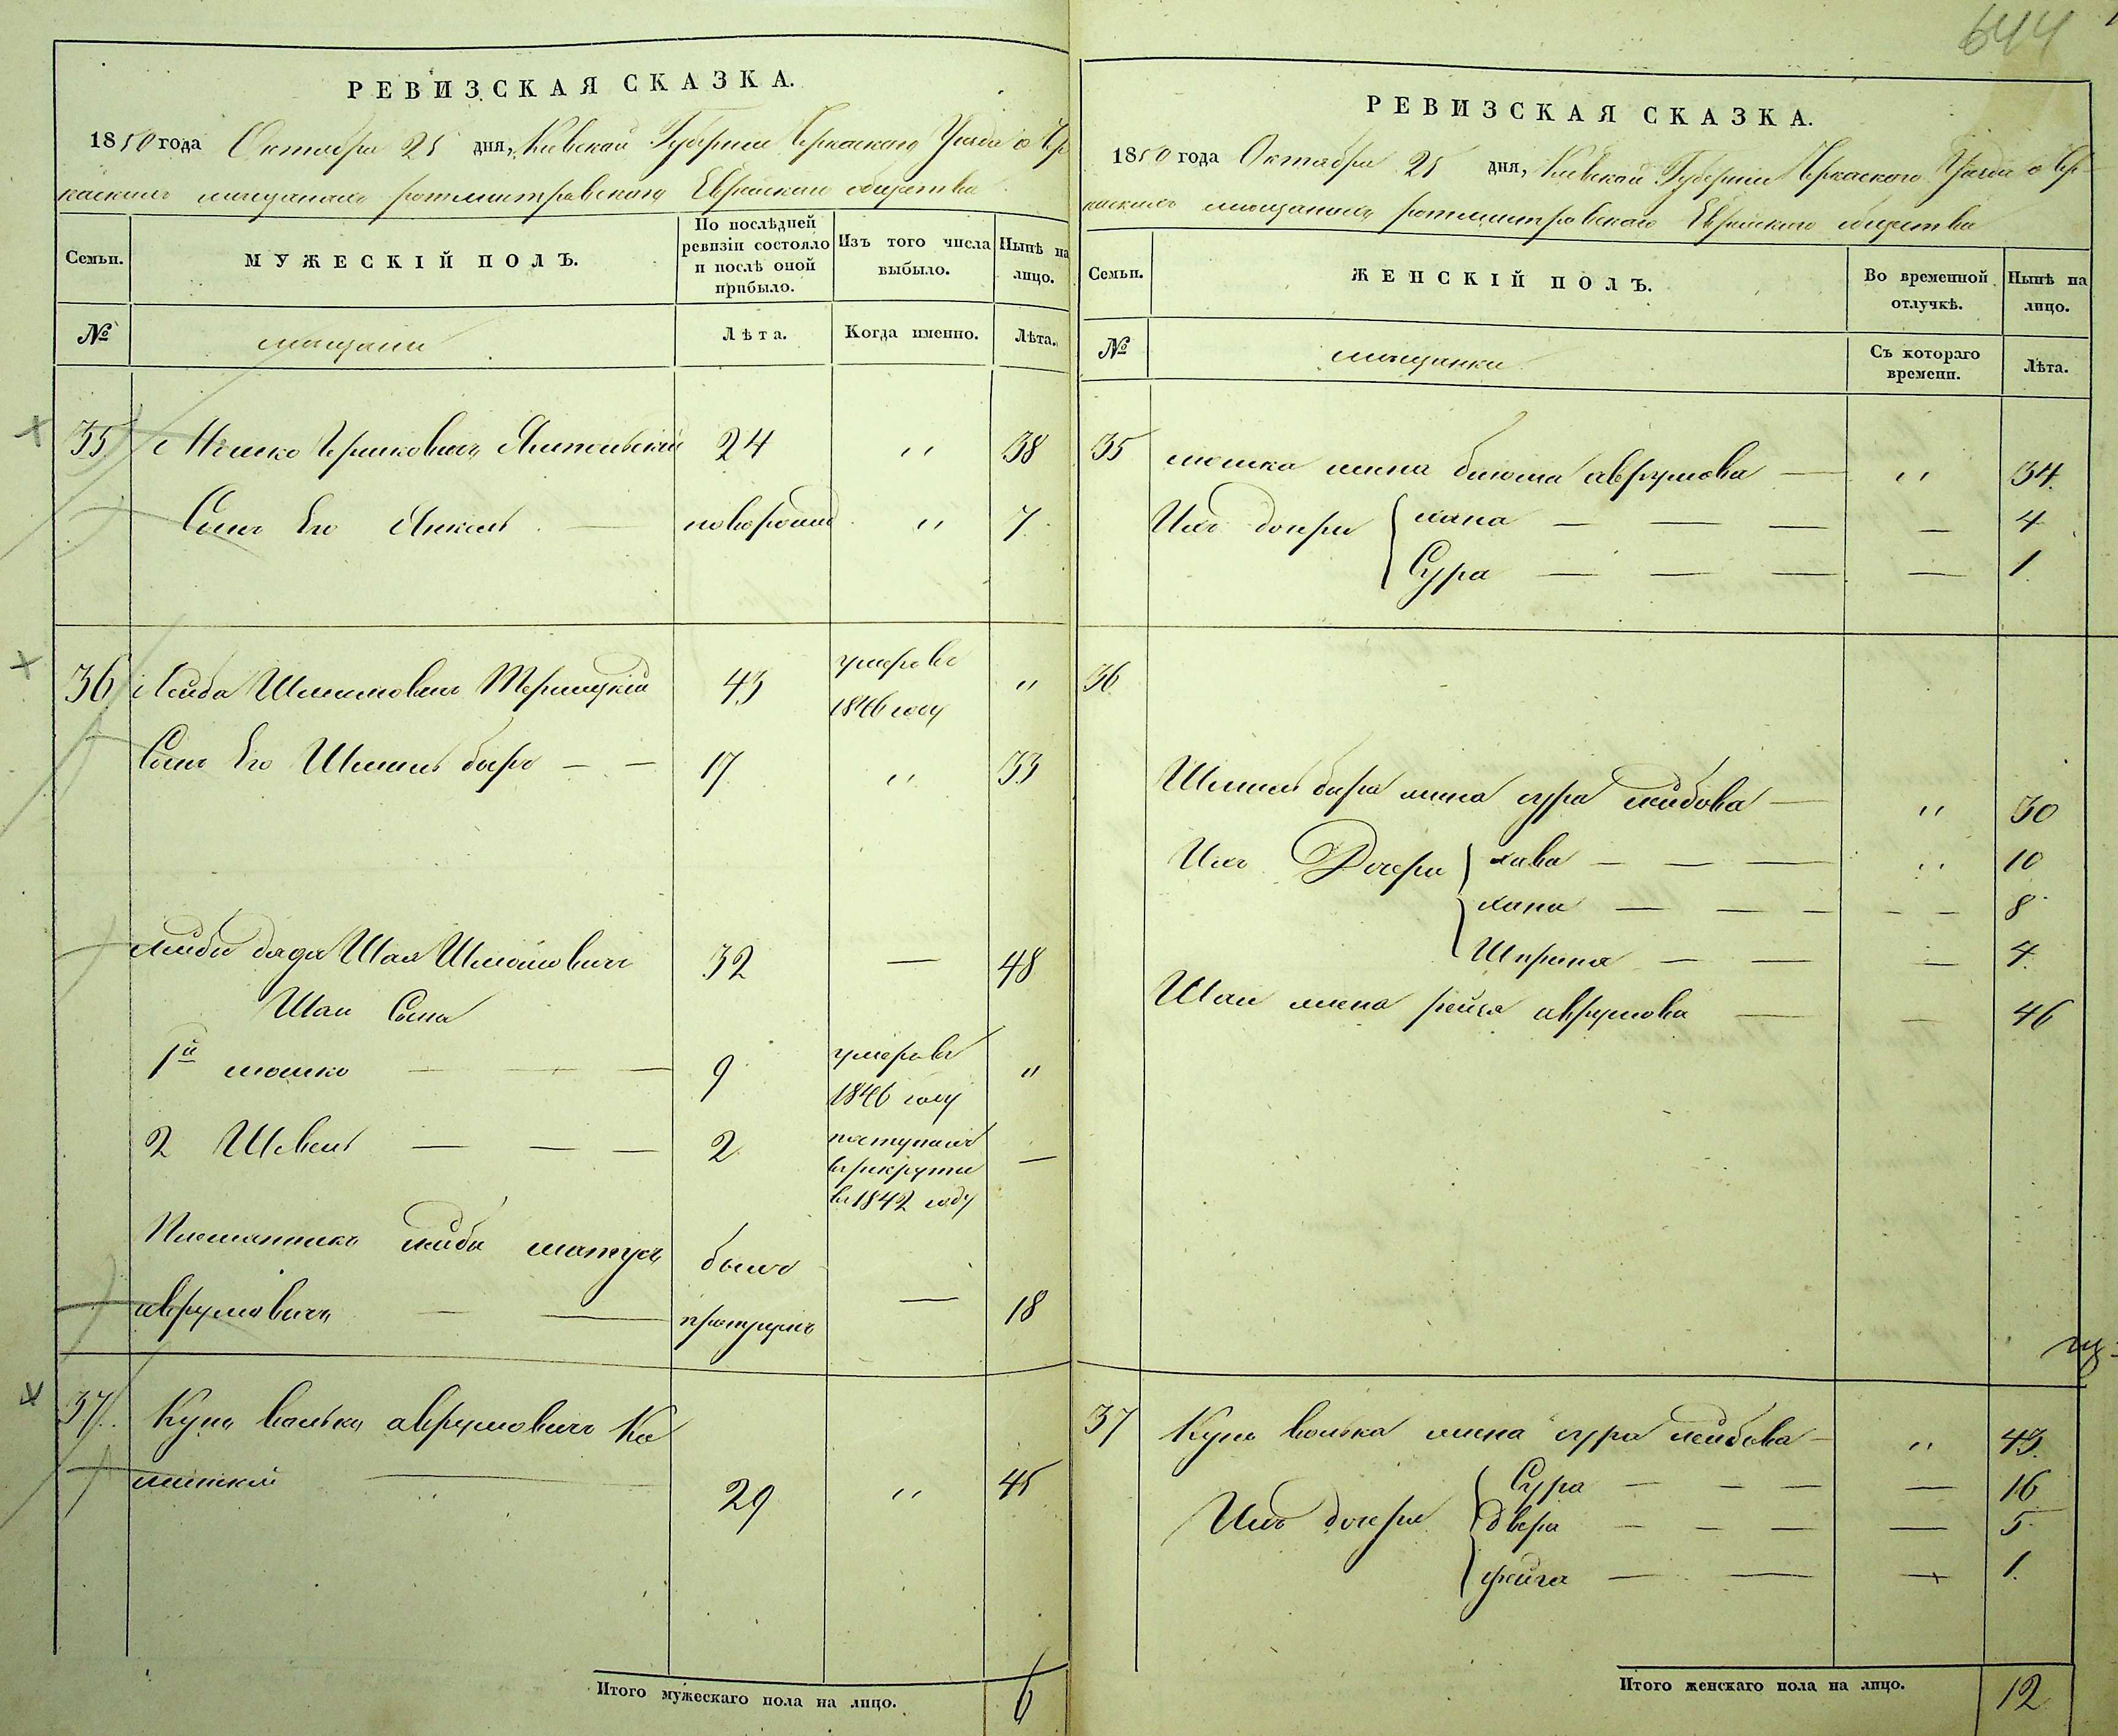 644
РЕВИЗСКАЯ СКАЗКА.
1850 года Октября 25 дня, Киевской Губернии Черкаскаго Уезда о Чер
каскихъ мещанахъ ротмистровскаго Еврейскаго общества
Семьи.
МУЖЕСКІЙ ПОЛЪ.
По послѣдней ревизіи состояло и послѣ оной прибыло.
Изъ того числа выбыло.
Нынѣ на лицо.
№
мещани
Лѣта.
Когда именно.
Лѣта.
35 Мошко Ицковичъ 24 „ 38
Сынъ Его Янкель новорожд „ 7
36 Лейба Шмилиовичъ 43 умеръ въ 1846 году „
Сынъ Его Шмиль беръ 17 „ 33
лейби дядя Шая Шмойловичъ 32 — 48
Шаи Сына
1й мошко 9 умеръ въ 1846 году „
2 Шевель 2 поступилъ в рекруты въ 1842 году —
Племянникъ лейба матусъ
аврумовичъ былъ пропущенъ — 18
37 Куна волька аврумовичъ Ка
минской 29 „ 45
Итого мужескаго пола на лицо. 6
РЕВИЗСКАЯ СКАЗКА.
1850 года Октября 25 дня, Киевской Губернии Черкаскаго Уезда о Чер-
каскихъ мещанахъ ротмистровскаго Еврейскаго общества
Семьи.
ЖЕНСКІЙ ПОЛЪ.
Во временной отлучкѣ.
Нынѣ на лицо.
№
мещанки
Съ котораго времени.
Лѣта.
35 мошка жена блюма аврумова — „ 34
Ихъ дочери хана — — — — 4
Сура — — — — 1
36
Шмиль бера жена сура лейбова — „ 30
Ихъ Дочери хава — — — „ 10
хана — — — — — 8
Шпринца — — — 4
Шаи жена рейзя аврумова — — 46
37 Куна волька жена сура лейбова — „ 43
Ихъ дочери Сура — — — — 16
двера — — — — 5
фейга — — — 1
Итого женскаго пола на лицо. 12